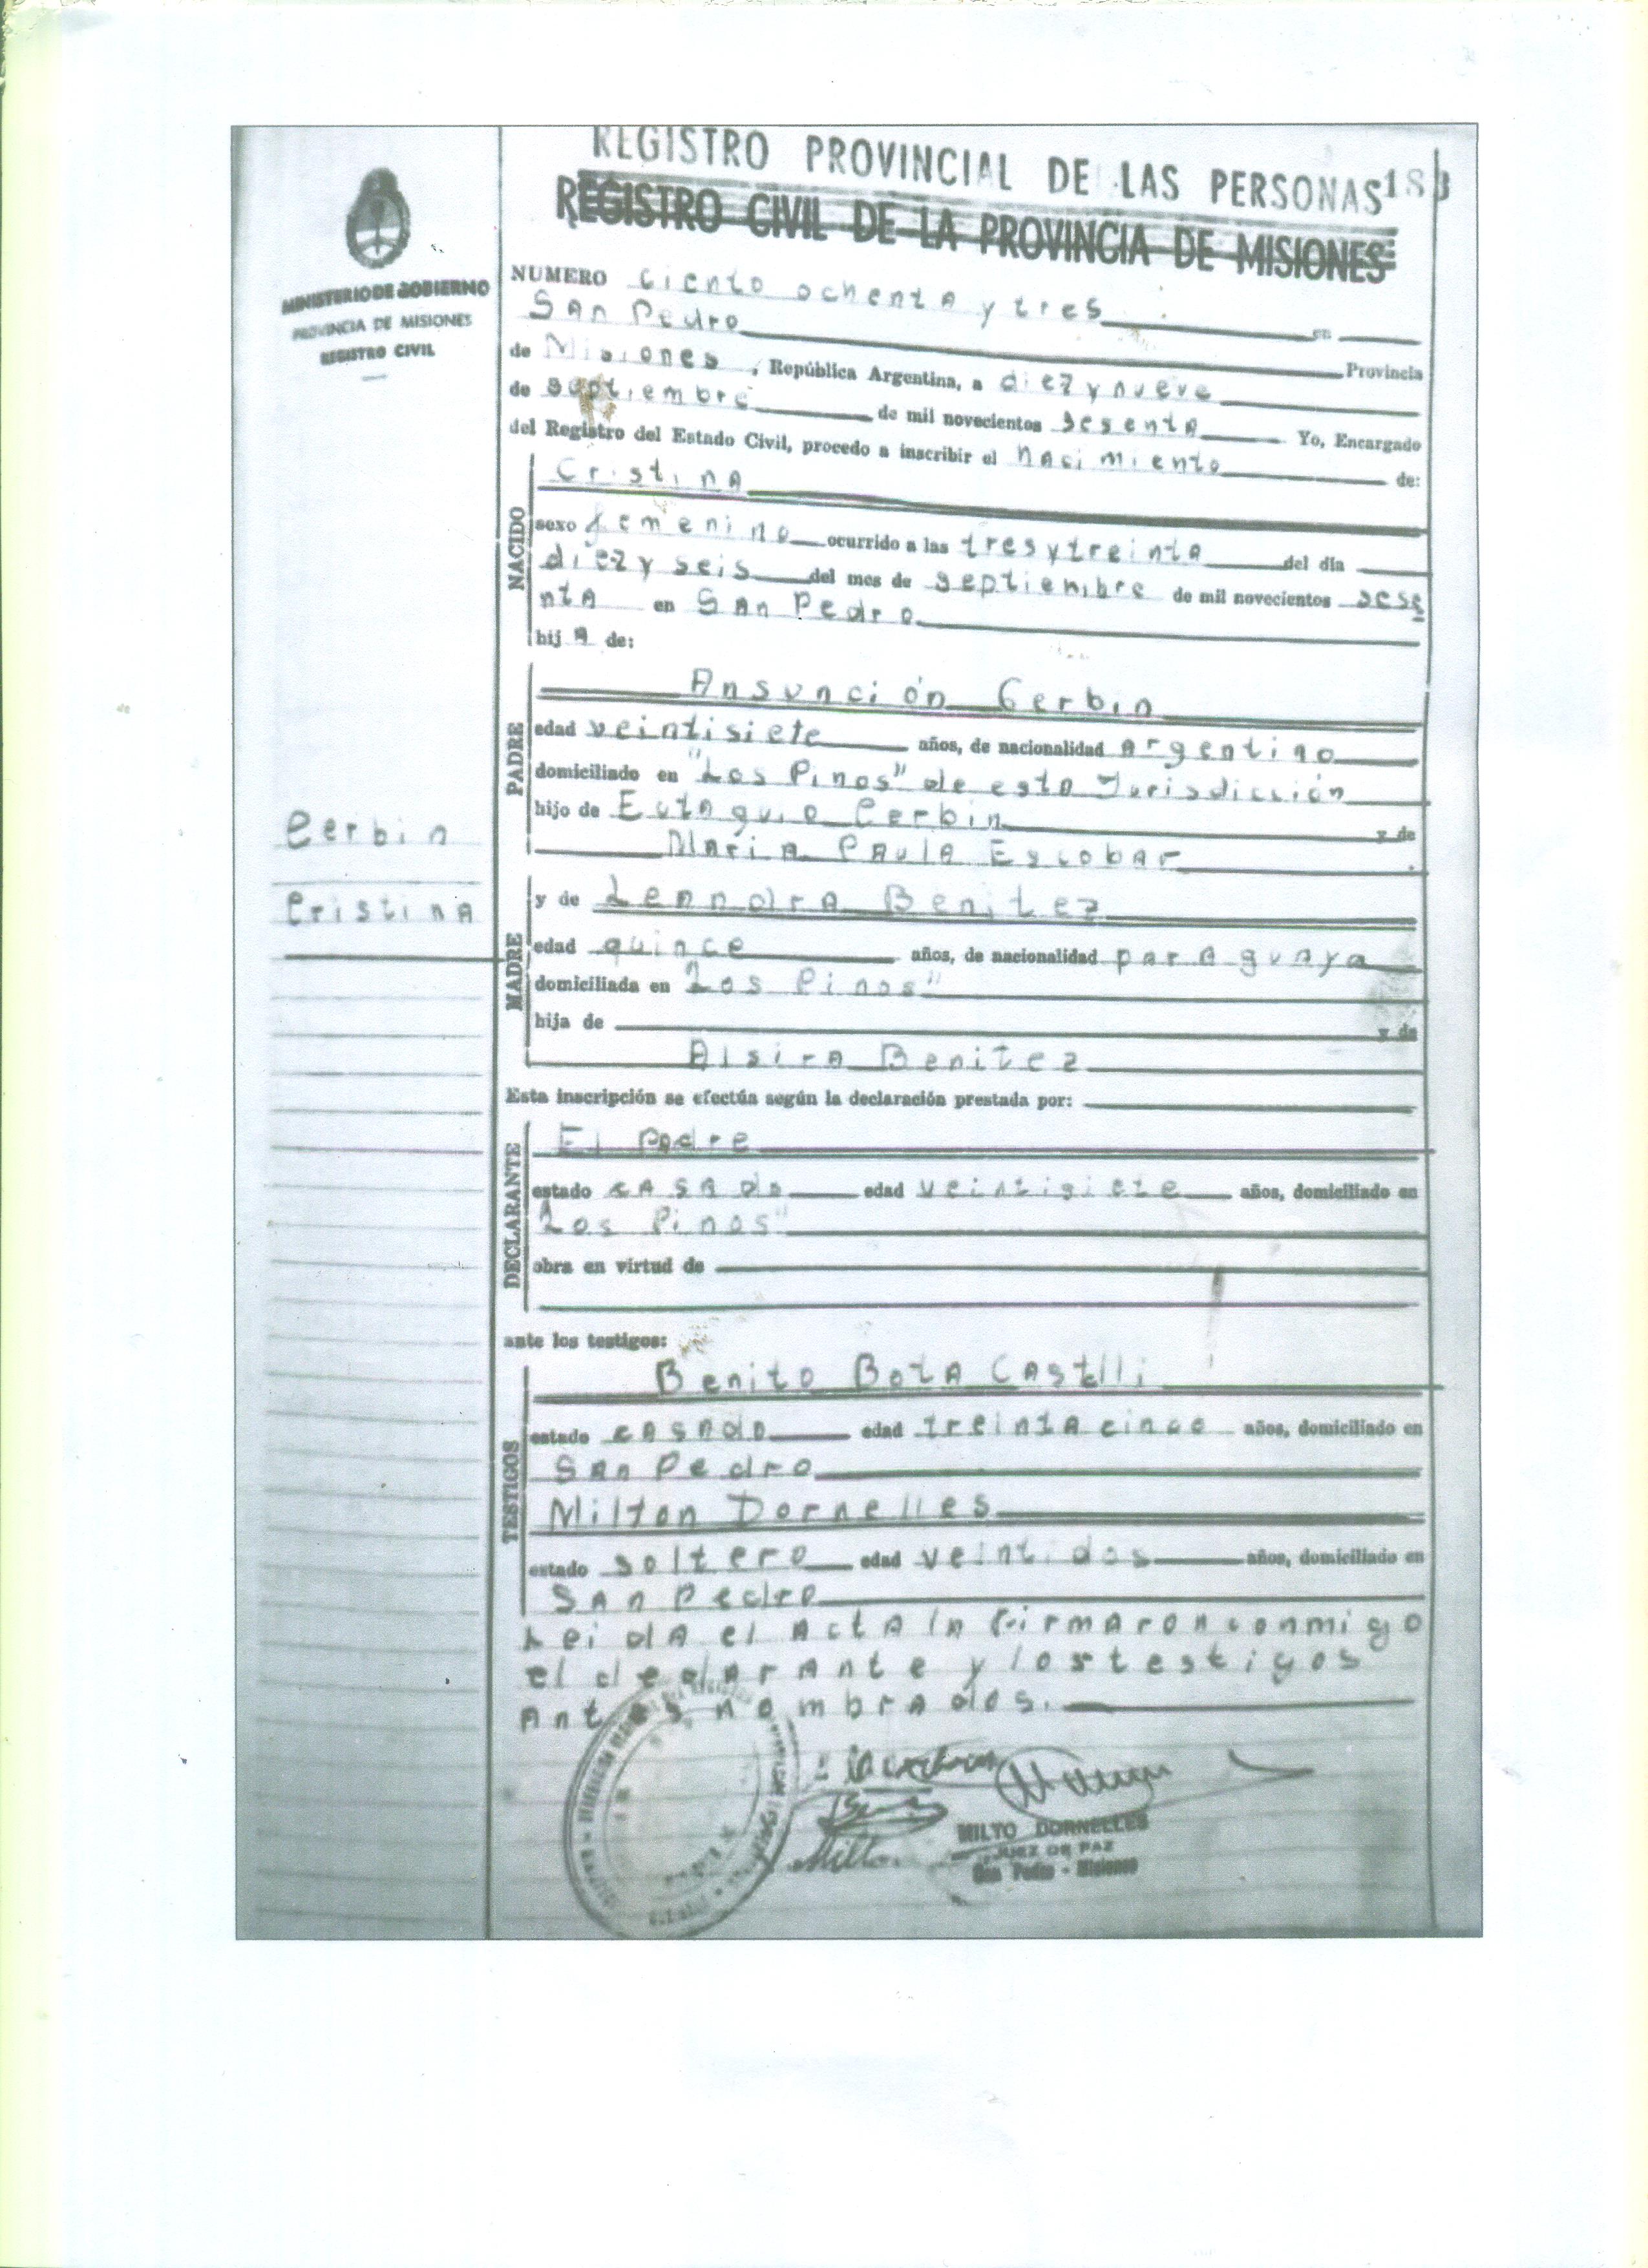 REGISTRO PROVINCIAL DE LAS PERSONAS 183
REGISTRO CIVIL DE LA PROVINCIA DE MISIONES
MINISTERIO DE GOBIERNO
PROVINCIA DE MISIONES
REGISTRO CIVIL
NUMERO Ciento ochenta y tres en
San Pedro Provincia
de Misiones, República Argentina, a diez y nueve
de septiembre de mil novecientos sesenta Yo, Encargado
del Registro del Estado Civil, procedo a inscribir el nacimiento de:
NACIDO
Cristina
sexo femenino ocurrido a las tres y treinta del día
diez y seis del mes de septiembre de mil novecientos sese
nta en San Pedro
hij a de:
PADRE
Ansunción Cerbin
edad veintisiete años, de nacionalidad Argentino
domiciliado en "Los Pinos" de esta Jurisdicción
hijo de Eutaquio Cerbin y de
María Paula Escobar
Cerbin
Cristina
MADRE
y de Leandra Benitez
edad quince años, de nacionalidad paraguaya
domiciliada en Los Pinos"
hija de y de
Alsira Benitez
Esta inscripción se efectúa según la declaración prestada por:
DECLARANTE
El padre
estado casado edad veintisiete años, domiciliado en
Los Pinos"
obra en virtud de
ante los testigos:
TESTIGOS
Benito Bota Castelli
estado casado edad treinta cinco años, domiciliado en
San Pedro
Milton Dornelles
estado soltero edad veintidos años, domiciliado en
San Pedro
Leida el Acta la firmaron conmigo
el declarante y los testigos
antes nombrados.
Milton
MILTO DORNELLES
JUEZ DE PAZ
San Pedro - Misiones